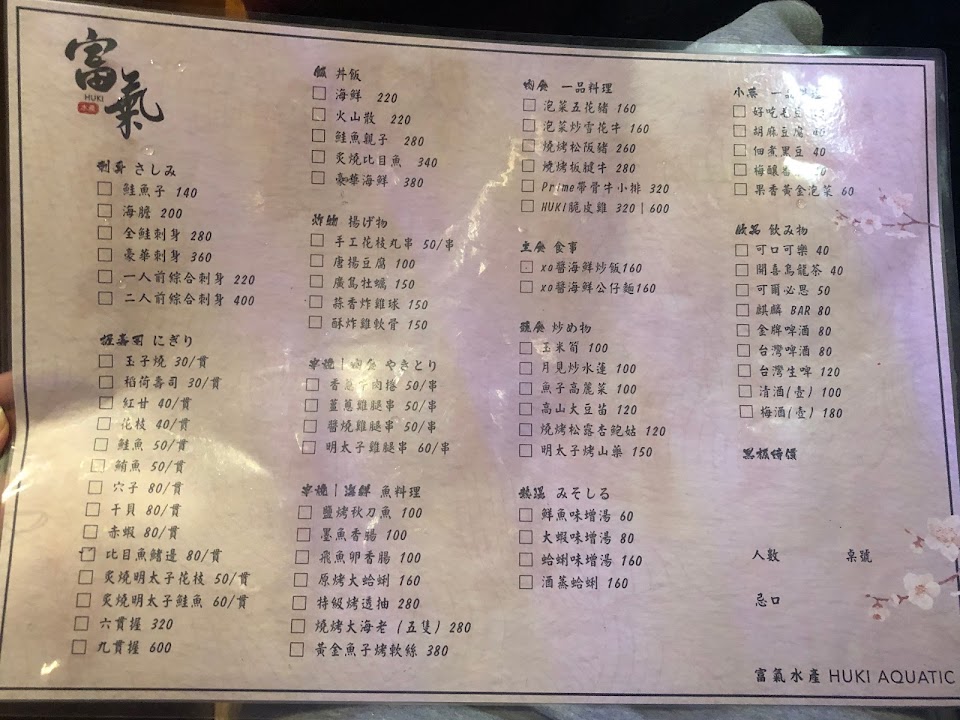 富氣
HUKI
水產
刺身 さしみ
鮭魚子 140
海膽 200
全鮭刺身 280
豪華刺身 360
一人前綜合刺身 220
二人前綜合刺身 400
握壽司 にぎり
玉子燒 30/貫
稻荷壽司 30/貫
紅甘 40/貫
花枝 40/貫
鮭魚 50/貫
鮪魚 50/貫
穴子 80/貫
干貝 80/貫
赤蝦 80/貫
比目魚鰭邊 80/貫
炙燒明太子花枝 50/貫
炙燒明太子鮭魚 60/貫
六貫握 320
九貫握 600
丼飯
海鮮 220
火山散 220
鮭魚親子 280
炙燒比目魚 340
豪華海鮮 380
炸物 揚げ物
手工花枝丸串 50/串
唐揚豆腐 100
廣島牡蠣 150
蒜香炸雞球 150
酥炸雞軟骨 150
串燒|肉食 やきとり
香蔥牛肉捲 50/串
蔥雞腿串 50/串
醬燒雞腿串 50/串
明太子雞腿串 60/串
串燒|海鮮 魚料理
鹽烤秋刀魚 100
墨魚香腸 100
飛魚卵香腸 100
原烤大蛤蜊 160
特級烤透抽 280
燒烤大海老(五隻) 280
黃金魚子烤軟絲 380
肉食 一品料理
泡菜五花豬 160
泡菜炒雪花牛 160
燒烤松阪豬 260
燒烤板腱牛 280
Prime帶骨牛小排 320
HUKI脆皮雞 320|600
主食 食事
xo醬海鮮炒飯160
xo醬海鮮公仔麵160
蔬食 炒め物
玉米筍 100
月見炒水蓮 100
魚子高麗菜 100
高山大豆苗 120
燒烤松露杏鮑菇 120
明太子烤山藥 150
熱湯 みそしる
鮮魚味增湯 60
大蝦味增湯 80
蛤蜊味增湯 160
酒蒸蛤蜊 160
小菜 一
好吃毛豆
胡麻豆腐 40
佃煮黑豆 40
梅釀番
果香黃金泡菜 60
飲品 飲み物
可口可樂 40
開喜烏龍茶 40
可爾必思 50
麒麟 BAR 80
金牌啤酒 80
台灣啤酒 80
台灣生啤 120
清酒(壺) 100
梅酒(壺) 180
黑板特價
人數 桌號
忌口
富氣水產 HUKI AQUATIC